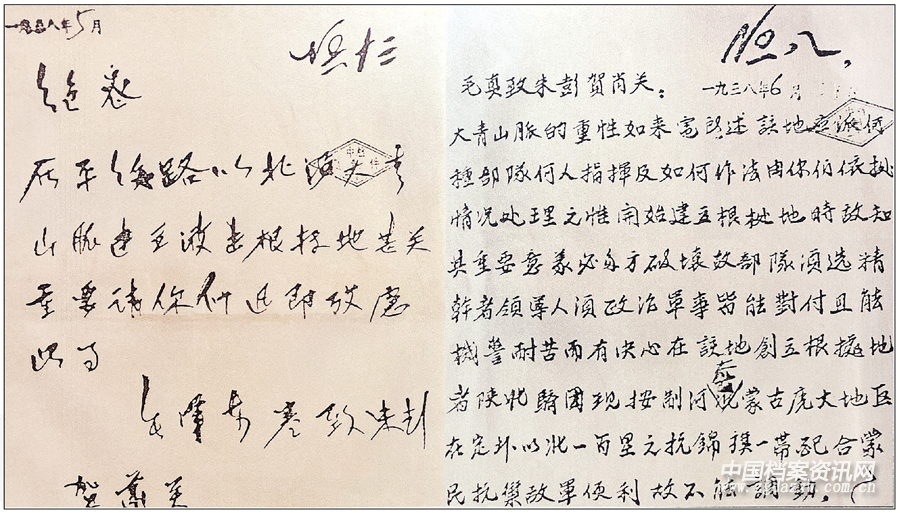 一九三八年5月
绝密
在平绥路以北沿大青
山脉建立游击根据地甚关
重要请你们迅即考虑
此事
毛泽东 致朱彭
贺萧关
毛真致朱彭贺肖关：
一九三八年6月
大青山脉的重性如来電所述該地应派何
種部隊何人指揮及如何作法由你们依据
情况处理之惟開始建立根据地時敌知
其重要意義必多方破壞故部隊須选精
幹者領導人須政治軍事皆能對付且能
機警耐苦而有决心在該地創立根據地
者陕北騎團現按制河套蒙古庞大地区
在定环以北一百里之杭錦旗一帶配合蒙
民抗禦敌軍便利故不能調動。
中国档案资讯网